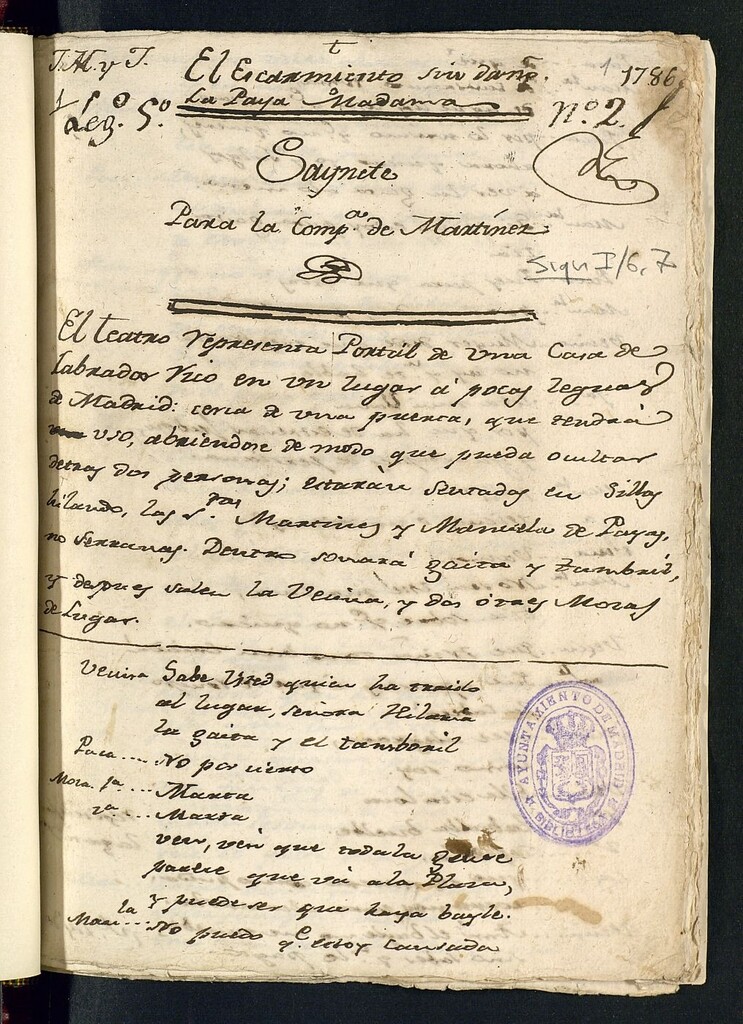 t
J. M. y J. El Escarmiento sin daño. 1 1786
La Paya Madama
1 Leg.º 5.º Nº. 2.
Saynete
Para la Comp.ª de Martínez
Sign I/6, 7
El teatro representa Portál de una Casa de
labrador rico en un lugar á pocas leguas
de Madrid: cerca de una puerta, que tendrá
uso, abriendose de modo que pueda ocultar
detras dos personas; estarán sentadas en Sillas
hilando, las S.ras Martinez y Manuela de Payas,
no serranas. Dentro sonará gaita y tamboril,
y despues salen la Vecina, y dos ótras Mozas
de Lugar.
Vecina Sabe Usted quien ha traido
al lugar, señora Hilaria
la gaita y el tamboril
Paca.... No por cierto
Moza 1a.... Marta
2a.... Marta
ven, ven que toda la gente
parece que vá a la Plaza,
y puede ser que haya bayle.
Man.la... No puedo q.e estoy cansada
AYUNTAMIENTO DE MADRID
BIBLIOTECA